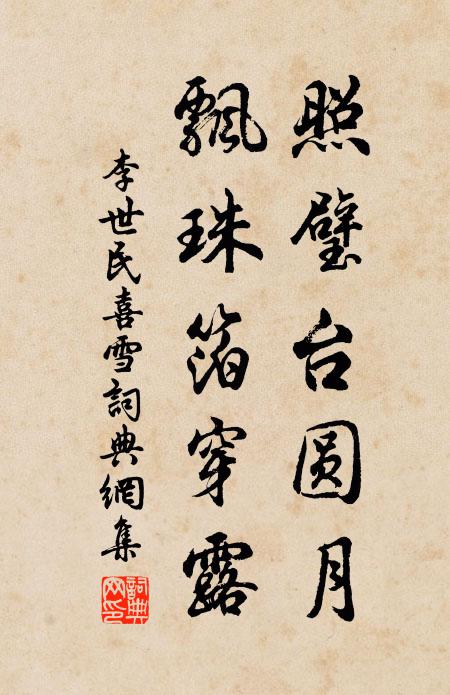 照璧台圆月
飄珠箔穿露
李世民喜雪詞典網集
詞典网印